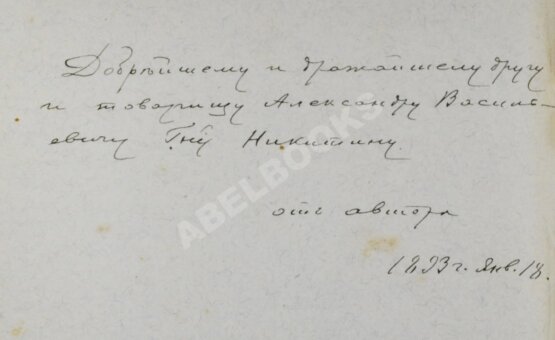 Добрѣйшему и дражайшему другу
и товарищу Александру Василь-
евичу Гну Никитину.
отъ автора
1893 г. Янв. 18.
ABELBOOKS